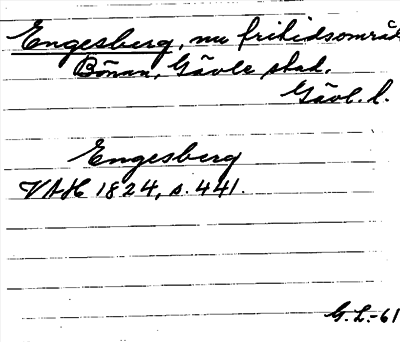 Engesberg, nu fritidsområ
Bönan, Gävle stad.
Gävl. l.
Engesberg
VAH 1824, s. 441.
G. L. -61